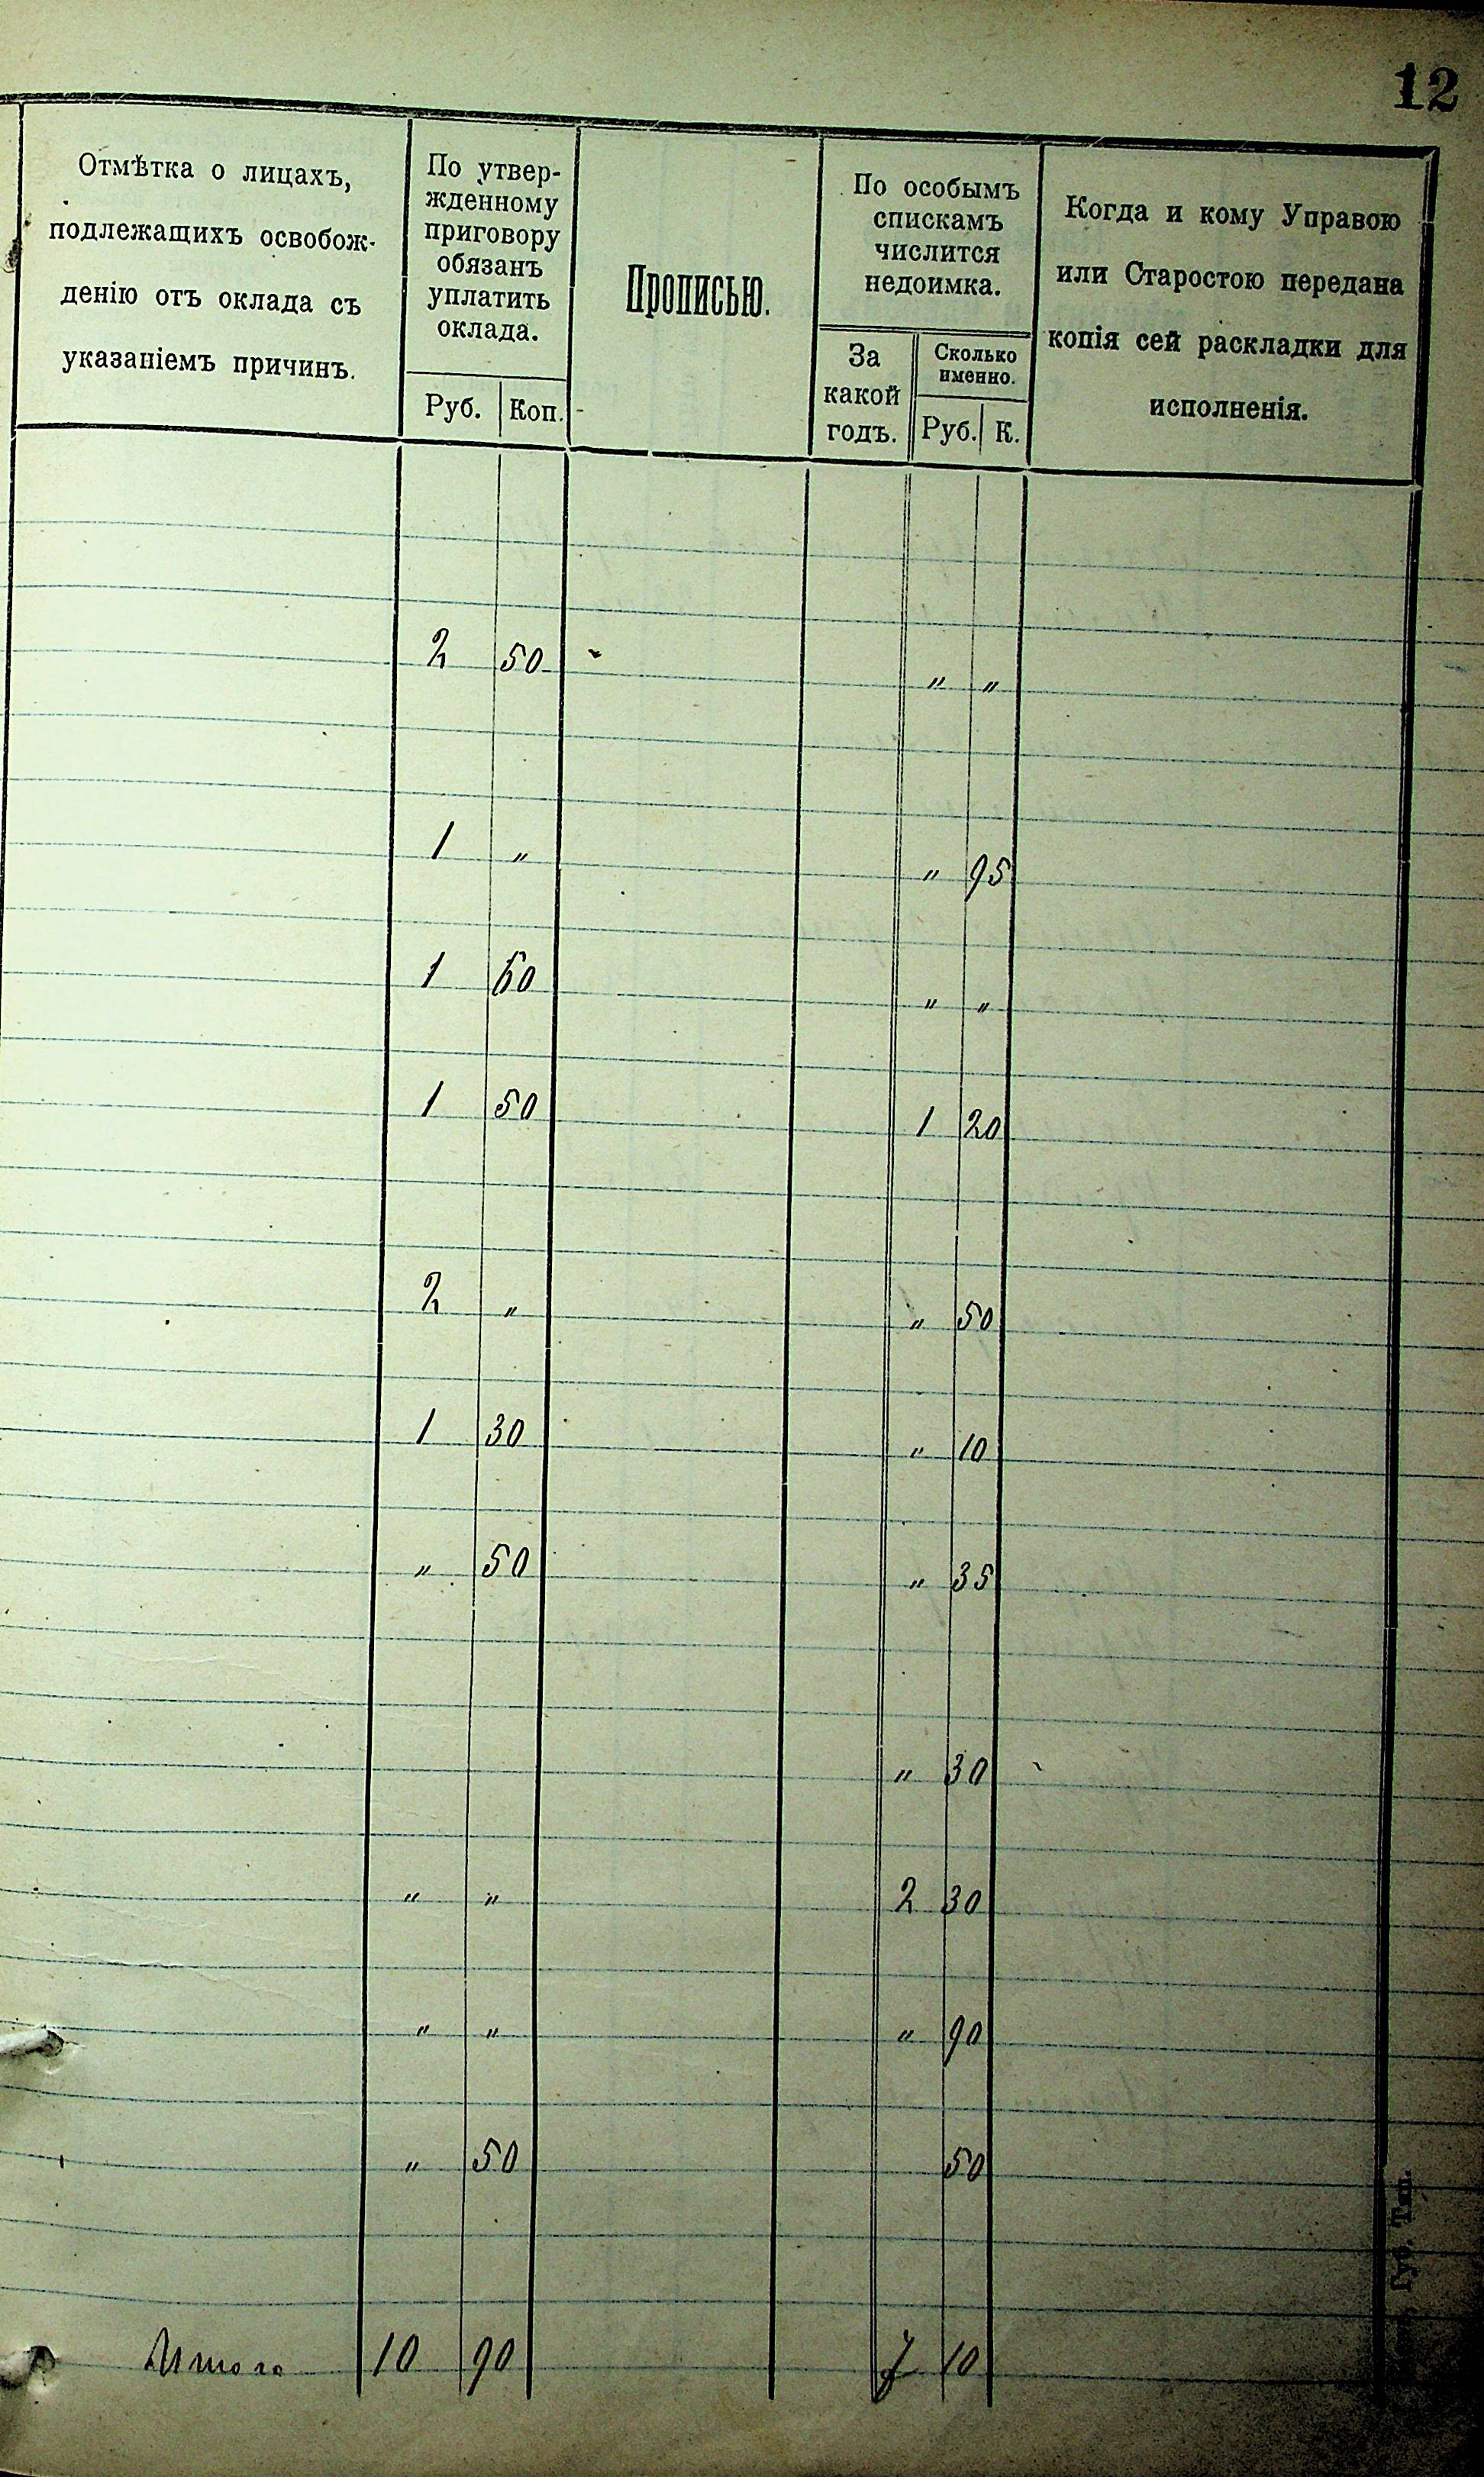 12
Отмѣтка о лицахъ,
подлежащихъ освобож-
денію отъ оклада съ
указаніемъ причинъ.
По утвер-
жденному
приговору
обязанъ
уплатить
оклада.
Руб. Коп.
Прописью.
По особымъ
спискамъ
числится
недоимка.
За
какой
годъ.
Сколько
именно.
Руб. К.
Когда и кому Управою
или Старостою передана
копія сей раскладки для
исполненія.
2 50 " "
1 " " 95
1 60 " "
1 50 1 20
2 " " 50
1 30 " 10
" 50 " 35
" 30
" " 2 30
" " " 90
" 50 50
Итого 10 90 7 10
Губ. Тип.